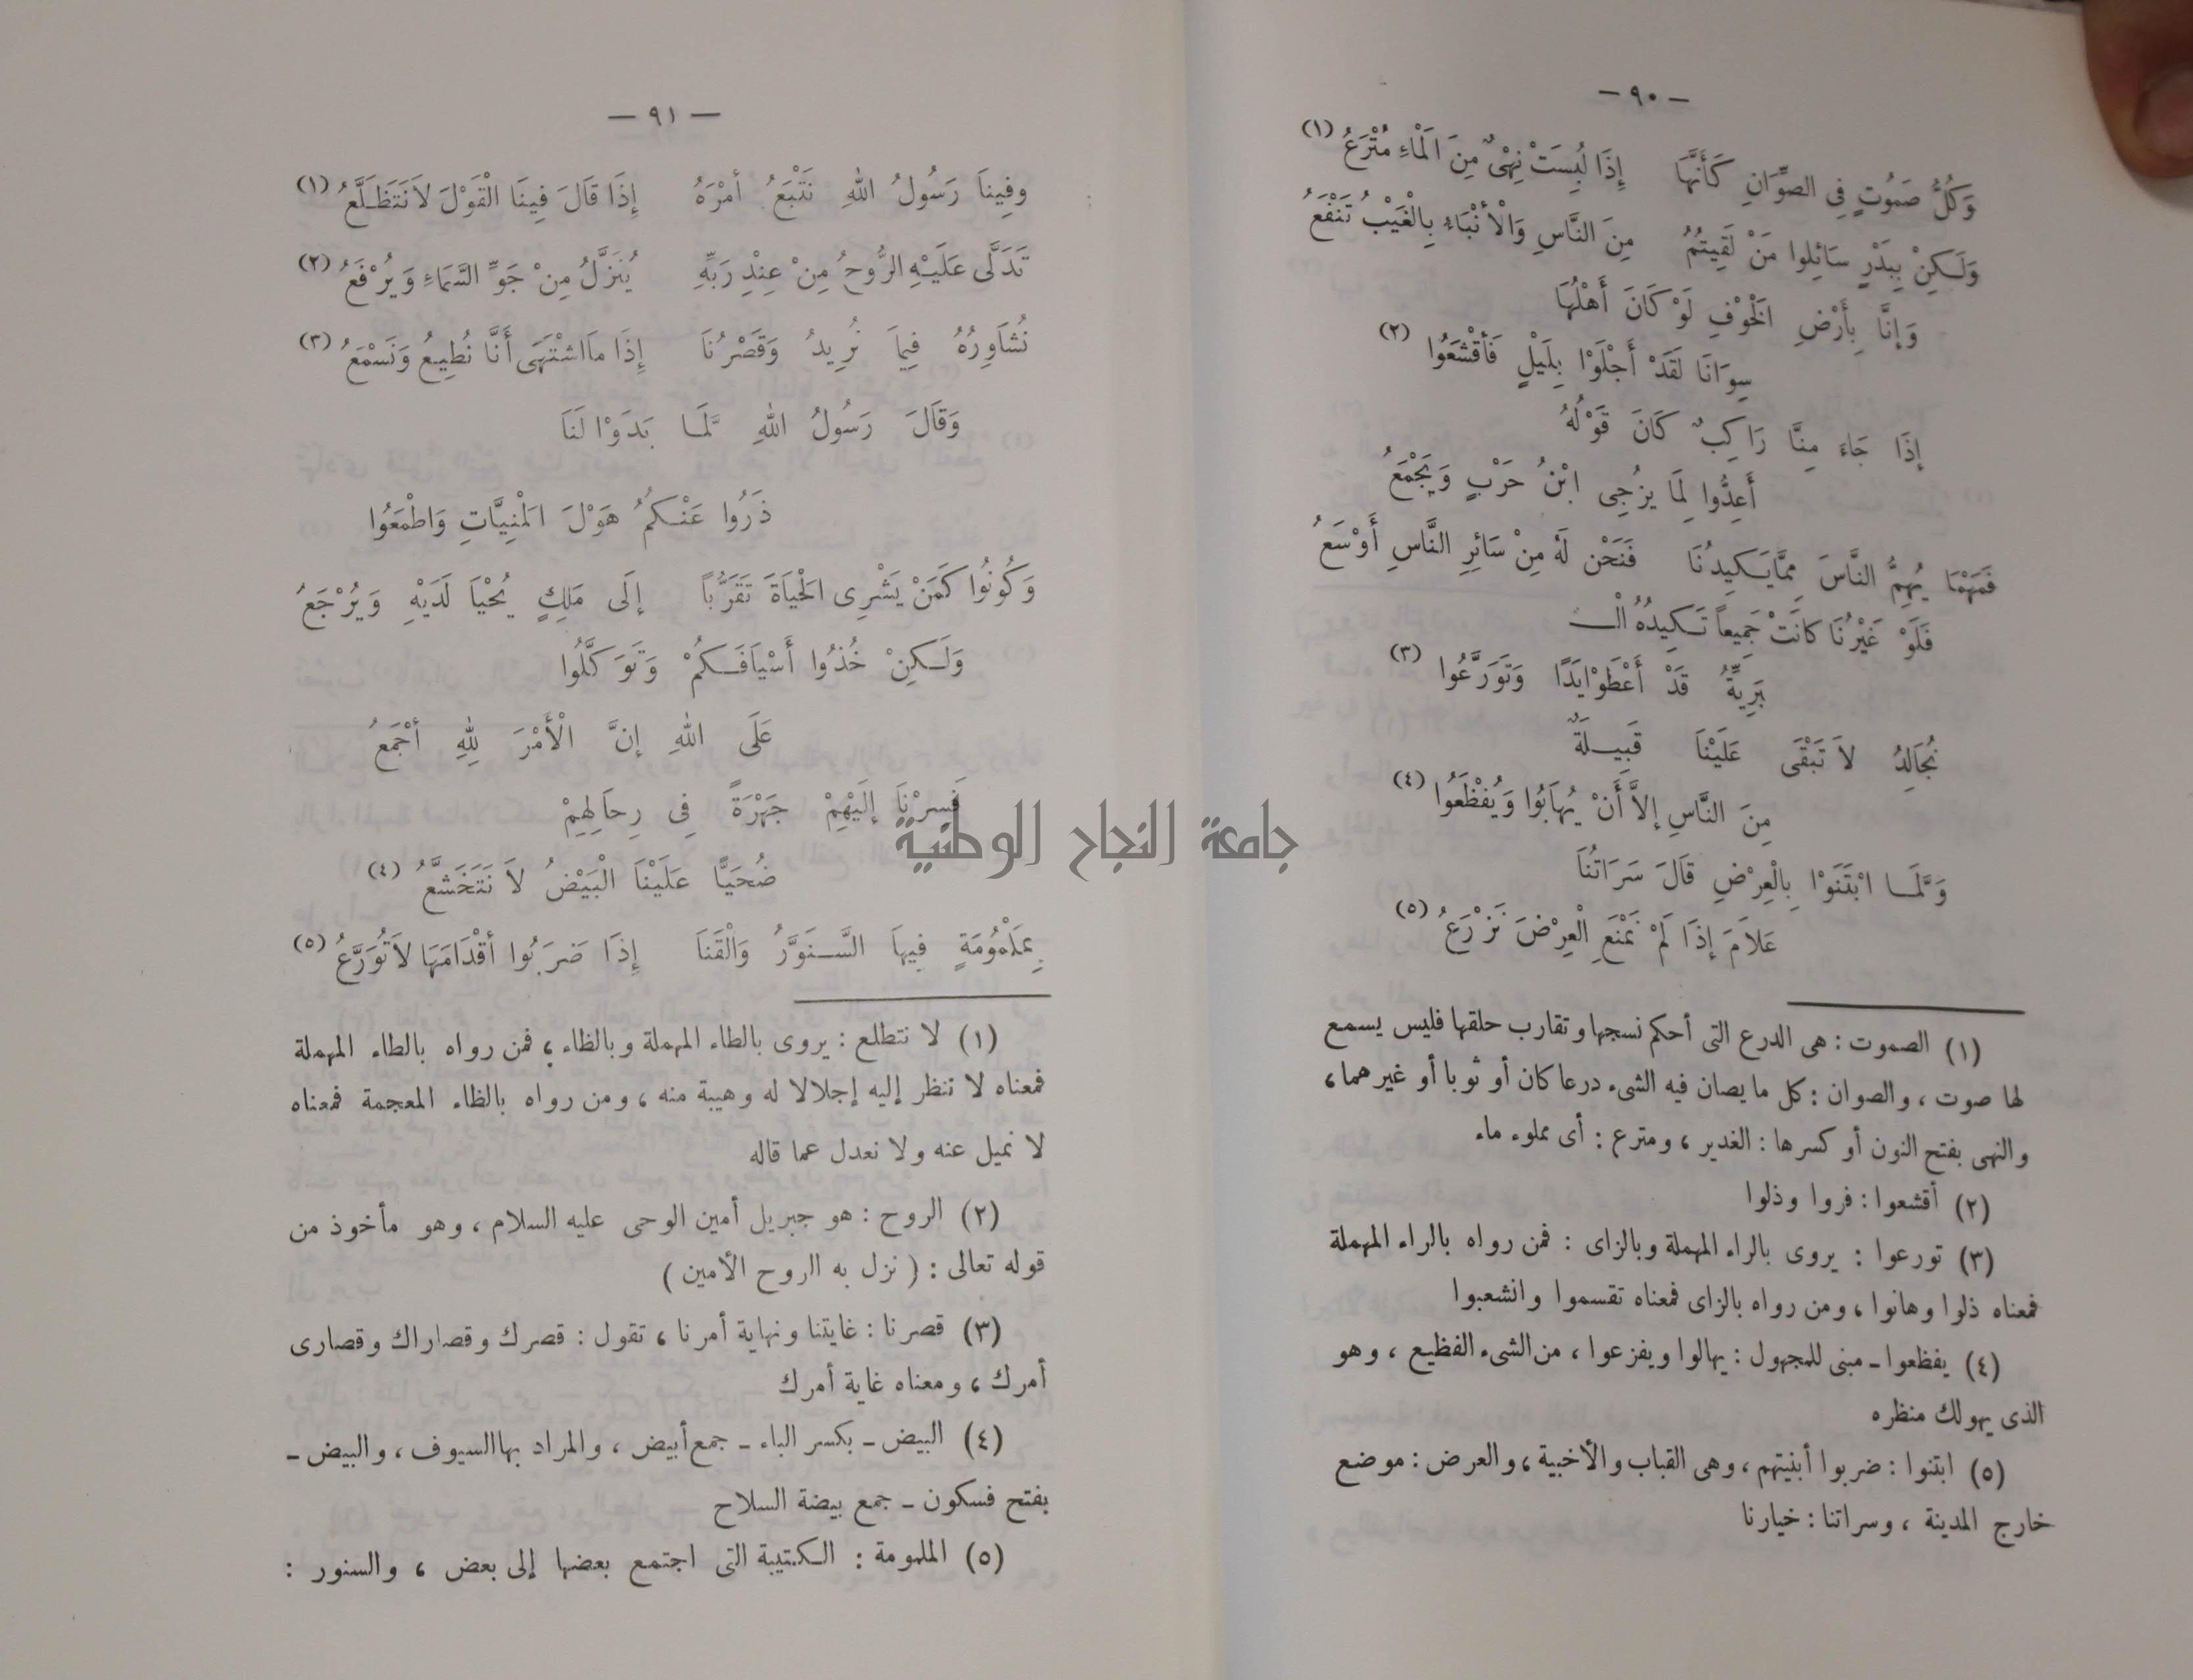 — ٩٠ —
وَكُلُّ صَمُوتٍ فِي الصِّوَانِ كَأَنَّهَا إِذَا لُبِسَتْ نِهْىٌ مِنَ الْمَاءِ مُتْرَعُ (١)
وَلَكِنْ بِبَدْرٍ سَائِلُوا مَنْ لَقِيتُمُ مِنَ النَّاسِ وَالْأَنْبَاءُ بِالْغَيْبِ تَنْفَعُ
وَإِنَّا بِأَرْضِ الْخَوْفِ لَوْ كَانَ أَهْلُهَا
سِوَانَا لَقَدْ أَجْلَوْا بِلَيْلٍ فَأَقْشَعُوا (٢)
إِذَا جَاءَ مِنَّا رَاكِبٌ كَانَ قَوْلُهُ
أَعِدُّوا لِمَا يُزْجِى ابْنُ حَرْبٍ وَيَجْمَعُ
فَمَهْمَا يُهِمُّ النَّاسَ مِمَّا يَكِيدُنَا فَنَحْنُ لَهُ مِنْ سَائِرِ النَّاسِ أَوْسَعُ
فَلَوْ غَيْرُنَا كَانَتْ جَمِيعاً تَكِيدُهُ الْـ
بَرِيَّةُ قَدْ أَعْطَوْا يَدًا وَتَوَرَّعُوا (٣)
نُجَالِدُ لاَ تَبْقَى عَلَيْنَا قَبِيلَةٌ
مِنَ النَّاسِ إِلاَّ أَنْ يُهَابُوا وَيُفْظَعُوا (٤)
وَلَمَّا ابْتَنَوْا بِالْعِرْضِ قَالَ سَرَاتُنَا
عَلاَمَ إِذَا لَمْ نَمْنَعِ الْعِرْضَ نَزْرَعُ (٥)
(١) الصموت : هى الدرع التى أحكم نسجها وتقارب حلقها فليس يسمع
لها صوت ، والصوان : كل ما يصان فيه الشىء درعا كان أو ثوبا أو غيرهما ،
والنهى بفتح النون أو كسرها : الغدير ، ومترع : أى مملوء ماء
(٢) أقشعوا : فروا وذلوا
(٣) تورعوا : يروى بالراء المهملة وبالزاى : فمن رواه بالراء المهملة
فمعناه ذلوا وهانوا ، ومن رواه بالزاى فمعناه تقسموا وانشعبوا
(٤) يفظعوا ـ مبنى للمجهول : يهالوا ويفزعوا ، من الشىء الفظيع ، وهو
الذى يهولك منظره
(٥) ابتنوا : ضربوا أبنيتهم ، وهى القباب والأخبية ، والعرض : موضع
خارج المدينة ، وسراتنا : خيارنا
— ٩١ —
وفِينَا رَسُولُ اللهِ نَتْبَعُ أمْرَهُ إِذَا قَالَ فِينَا الْقَوْلَ لاَ نَتَظَلَّعُ (١)
تَدَلَّى عَلَيْهِ الرُّوحُ مِنْ عِنْدِ رَبِّهِ يُنَزَّلُ مِنْ جَوِّ السَّمَاءِ وَيُرْفَعُ (٢)
نُشَاوِرُهُ فِيمَا نُرِيدُ وَقَصْرُنَا إِذَا مَا اشْتَهَى أَنَّا نُطِيعُ وَنَسْمَعُ (٣)
وَقَالَ رَسُولُ اللهِ لَمَّا بَدَوْا لَنَا
ذَرُوا عَنْكُمُ هَوْلَ الْمَنِيَّاتِ وَاطْمَعُوا
وَكُونُوا كَمَنْ يَشْرِى الْحَيَاةَ تَقَرُّباً إِلَى مَلِكٍ يُحْيَا لَدَيْهِ وَيُرْجَعُ
وَلَكِنْ خُذُوا أَسْيَافَكُمْ وَتَوَكَّلُوا
عَلَى اللهِ إِنَّ الْأَمْرَ لِلهِ أجْمَعُ
فَسِرْنَا إِلَيْهِمْ جَهْرَةً فِى رِحَالِهِمْ
ضُحَيًّا عَلَيْنَا الْبَيْضُ لاَ نَتَخَشَّعُ (٤)
بِمَلْمُومَةٍ فِيهَا السَّنَوَّرُ وَالْقَنَا إِذَا ضَرَبُوا أقْدَامَهَا لاَ تُوَرَّعُ (٥)
(١) لا نتطلع : يروى بالطاء المهملة وبالظاء ، فمن رواه بالطاء المهملة
فمعناه لا ننظر إليه إجلالا له وهيبة منه ، ومن رواه بالظاء المعجمة فمعناه
لا نميل عنه ولا نعدل عما قاله
(٢) الروح : هو جبريل أمين الوحى عليه السلام ، وهو مأخوذ من
قوله تعالى : ( نزل به الروح الأمين )
(٣) قصرنا : غايتنا ونهاية أمرنا ، تقول : قصرك وقصاراك وقصارى
أمرك ، ومعناه غاية أمرك
(٤) البيض ـ بكسر الباء ـ جمع أبيض ، والمراد بها السيوف ، والبيض ـ
بفتح فسكون ـ جمع بيضة السلاح
(٥) الملمومة : الكتيبة التى اجتمع بعضها إلى بعض ، والسنور :
جامعة النجاح الوطنية